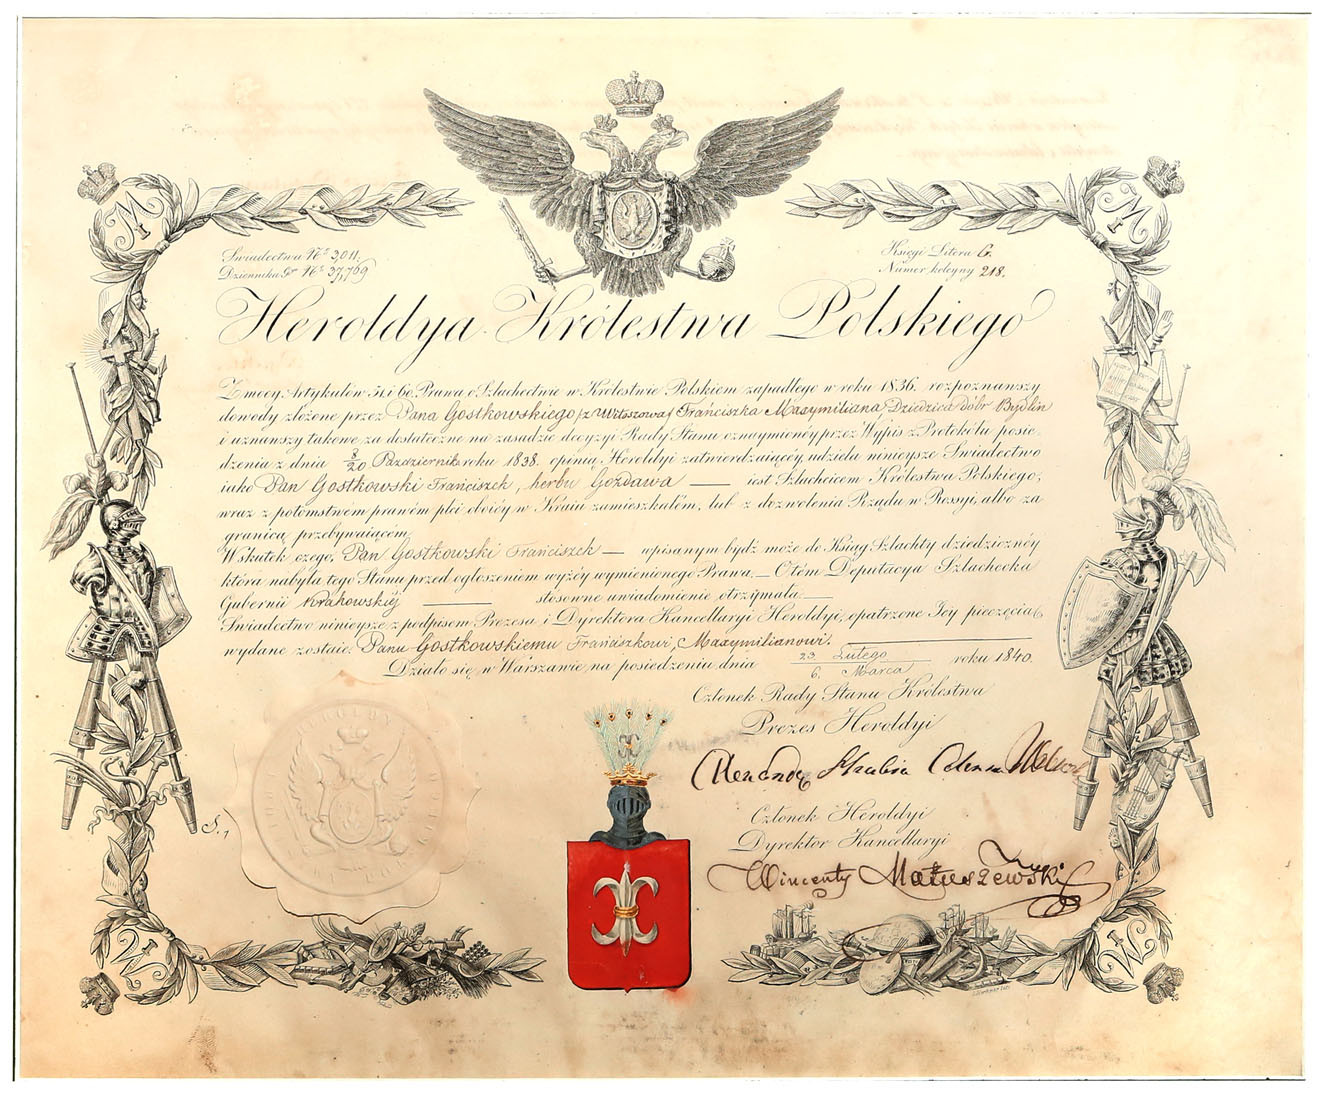 Świadectwa Nº 3,011.
Dziennika Gł. Nº 37,769
Księgi Litera G.
Numer kolejny 218.
Heroldya Królestwa Polskiego
Z mocy Artykułów 51 i 60 Prawa o Szlachectwie w Królestwie Polskiem zapadłego w roku 1836. rozpoznawszy
dowody złożone przez Pana Gostkowskiego Franciszka Maxymiliana Dziedzica dóbr Bydlin
i uznawszy takowe za dostateczne na zasadzie decyzyi Rady Stanu oznaymionéy przez Wypis z Protokółu posie-
dzenia z dnia 8/20 Października roku 1838. opinią Heroldyi zatwierdzaiącéy, udziela ninieysze Świadectwo
iako Pan Gostkowski Franciszek, herbu Gozdawa — iest Szlachcicem Królestwa Polskiego,
wraz z potomstwem prawém płci oboiéy w Kraiu zamieszkałém, lub z dozwolenia Rządu w Rossyi, albo za
granicą przebywaiącém.
Wskutek czego, Pan Gostkowski Franciszek — wpisanym bydź może do Ksiąg Szlachty dziedzicznéy
która nabyła tego Stanu przed ogłoszeniem wyżéy wymienionego Prawa. — O tém Deputacya Szlachecka
Gubernii Krakowskiéj — stosowne uwiadomienie otrzymała. —
Świadectwo ninieysze z podpisem Prezesa i Dyrektora Kancellaryi Heroldyi, opatrzone Jéy pieczęcią,
wydane zostaie Panu Gostkowskiemu Franciszkowi, Maxymilianowi.
Działo się w Warszawie, na posiedzeniu dnia 23 Lutego / 6 Marca roku 1840.
Członek Rady Stanu Królestwa
Prezes Heroldyi
Członek Heroldyi
Dyrektor Kancellaryi
Wincenty Matuszewski